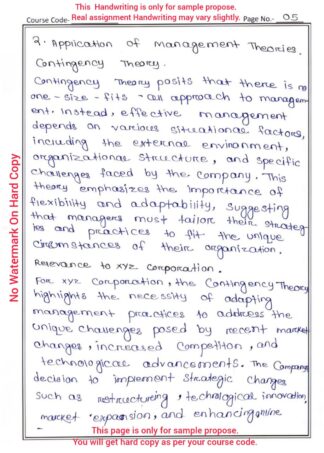 This Handwriting is only for sample prospose.
Real assignment Handwriting may vary slightly.
Course Code- Page No.- 05
No Watermark On Hard Copy
2. Application of Management Theories.
Contingency Theory.
Contingency Theory posits that there is no
one-size-fits-all approach to managem-
ent. instead, effective management
depends on various situational factors,
including the external environment,
organizational structure, and specific
challenges faced by the company. This
theory emphasizes the importance of
flexibility and adaptability, suggesting
that managers must tailor their strateg-
ies and practices to fit the unique
circumstances of their organization.
Relevance to xyz Corporation.
For xyz Corporation, the Contingency Theory
highlights the necessity of adapting
management practices to address the
unique challenges posed by recent market
changes, increased Competiton, and
technological advancements. The Company
decision to implement strategic changes
such as restructuring, technological innovation,
market expansion, and enhancing online
This page is only for sample prospose.
You will get hard copy as per your course code.